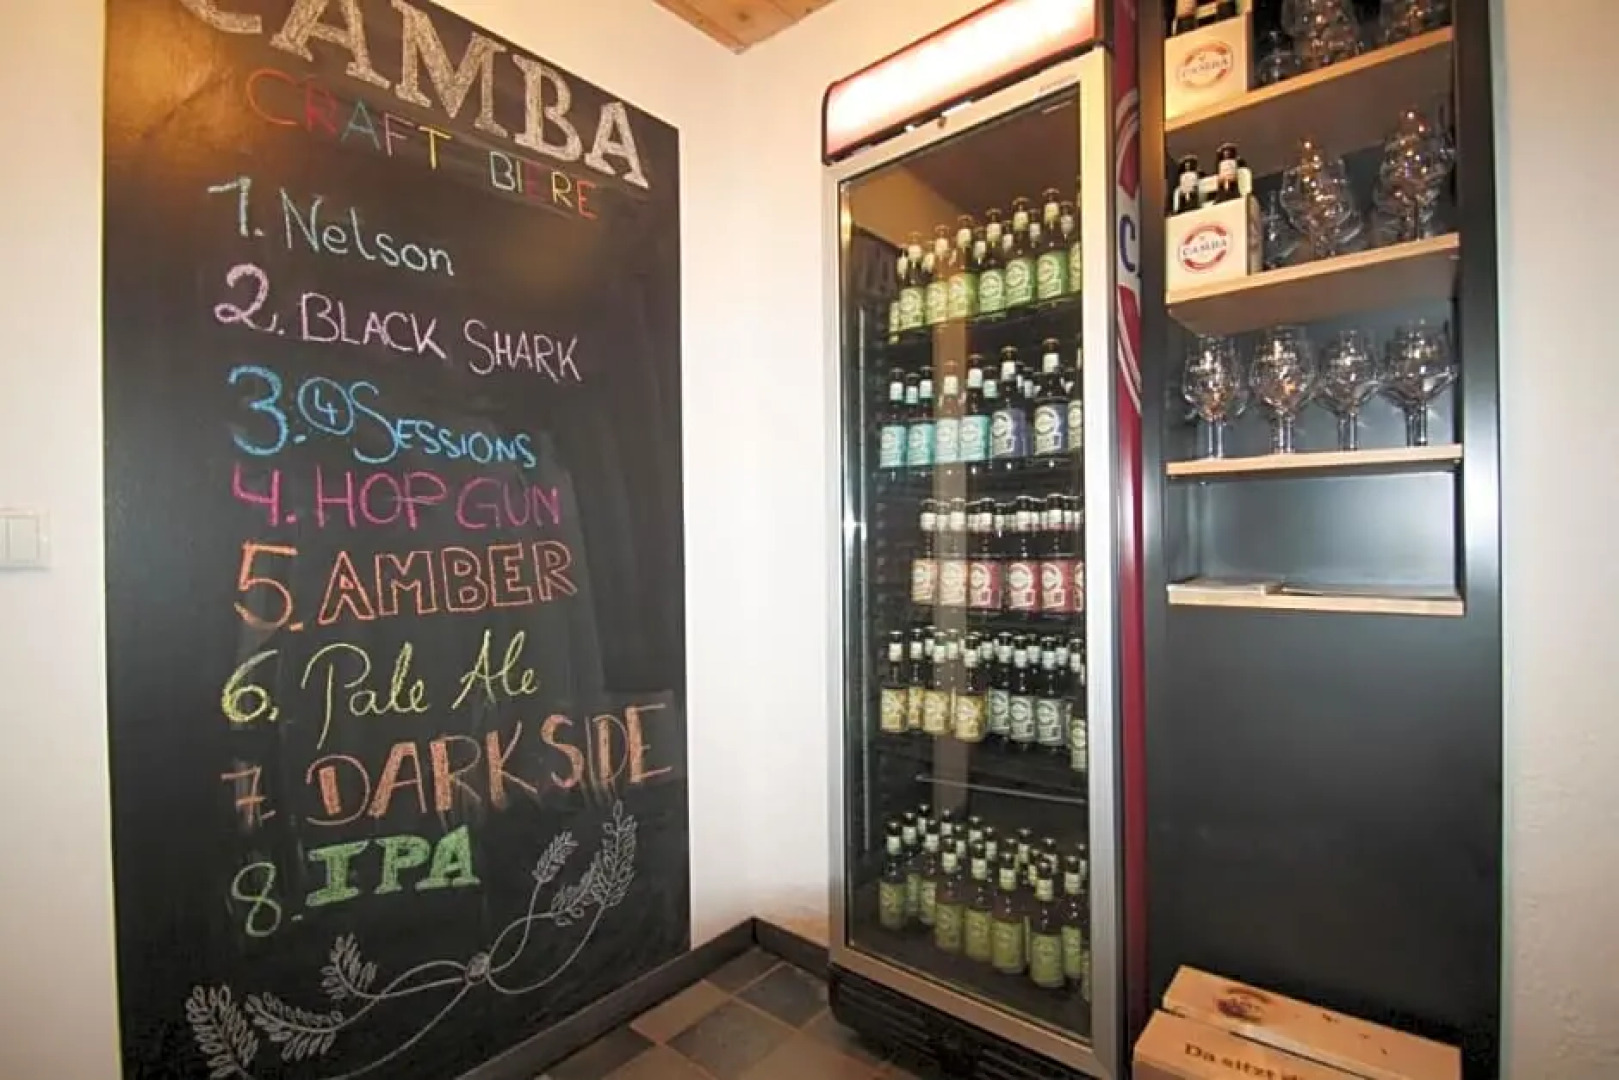 CAMBA
CRAFT BIERE
1. Nelson
2. BLACK SHARK
3. ④ SESSIONS
4. HOP GUN
5. AMBER
6. Pale Ale
7. DARK SIDE
8. IPA
CAMBA
CAMBA
Da sitzt